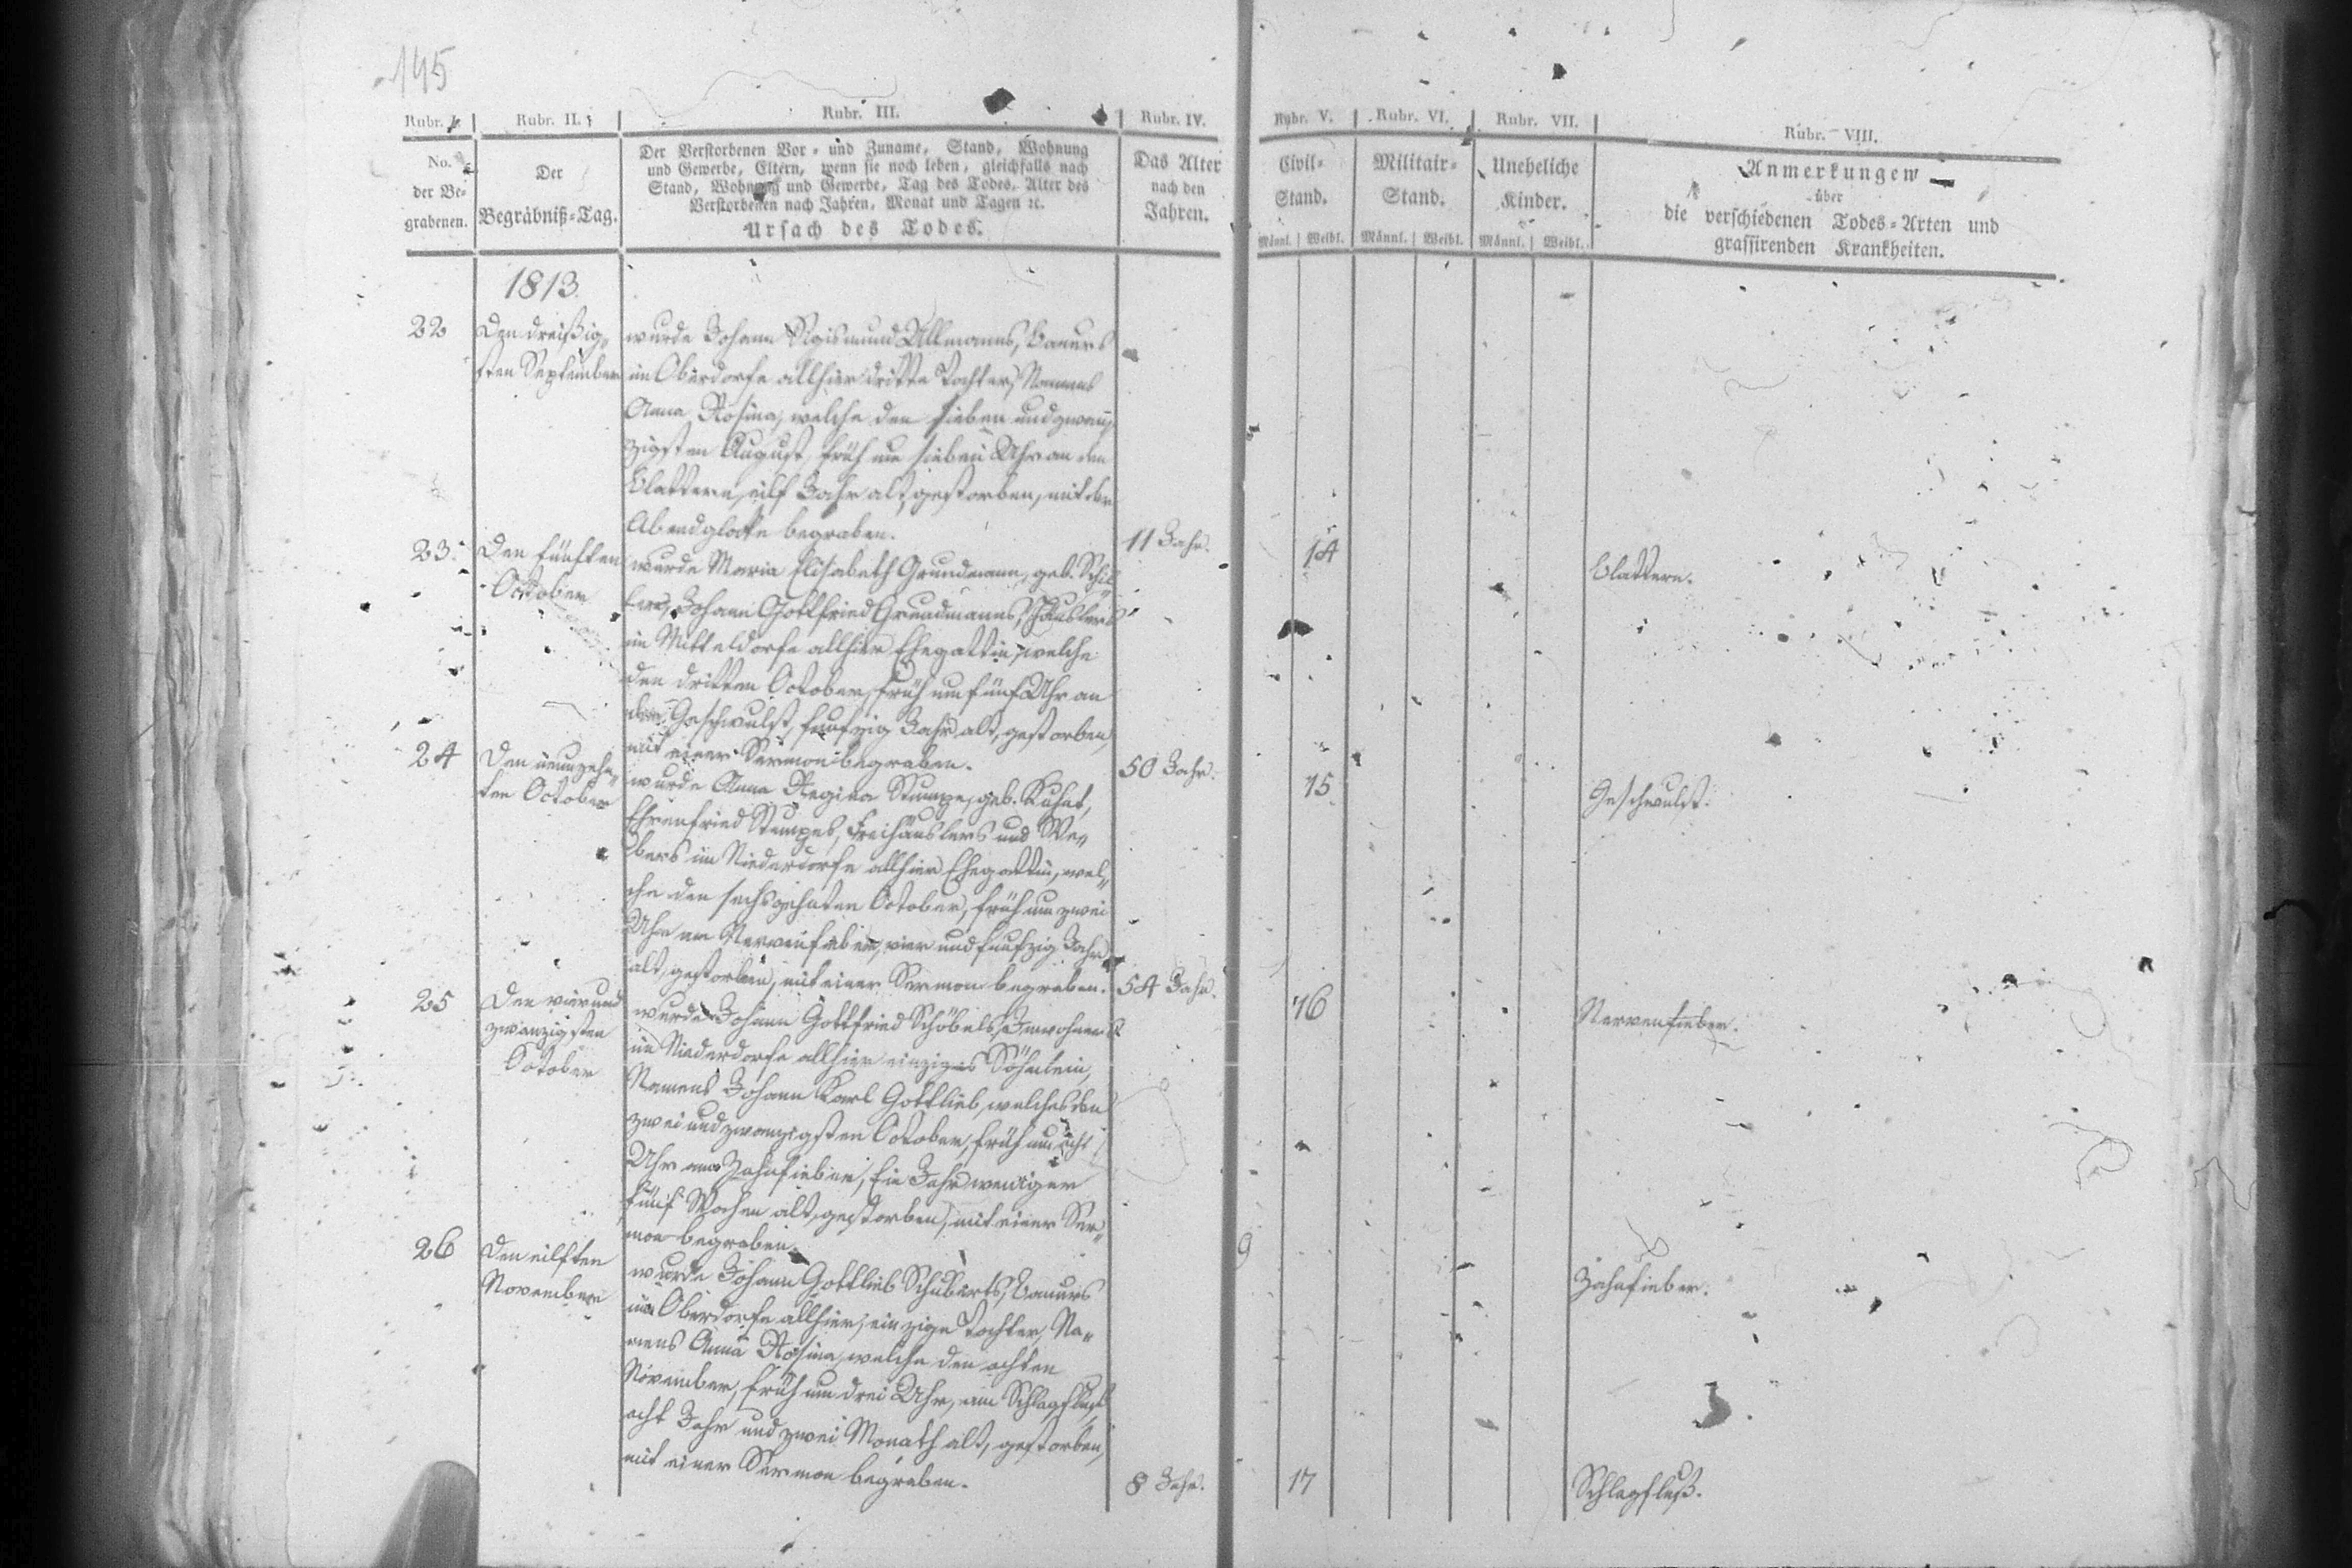 145
Rubr. I.
No.
der Be-
grabenen.
Rubr. II.
Der
Begräbniß-Tag.
Rubr. III.
Der Verstorbenen Vor- und Zuname, Stand, Wohnung
und Gewerbe, Eltern, wenn sie noch leben, gleichfalls nach
Stand, Wohnung und Gewerbe, Tag des Todes, Alter des
Verstorbenen nach Jahren, Monat und Tagen ꝛc.
Ursach des Todes.
Rubr. IV.
Das Alter
nach den
Jahren.
Rubr. V.
Civil-
Stand.
Männl. Weibl.
Rubr. VI.
Militair-
Stand.
Männl. Weibl.
Rubr. VII.
Uneheliche
Kinder.
Männl. Weibl.
Rubr. VIII.
Anmerkungen
über
die verschiedenen Todes-Arten und
grassirenden Krankheiten.
1813.
22
Den dreißig-
sten September
wurde Johann Sigismund Ullmanns, Bauers
im Oberdorfe allhier dritte Tochter, Namens
Anna Rosina, welche den sieben und zwan-
zigsten August, früh um sieben Uhr an den
Blattern, eilf Jahr alt, gestorben, mit der
Abendglocke begraben.
11 Jahr.
14
Blattern.
23.
Den fünften
October
wurde Maria Elisabeth Grundmann, geb. Schil-
ler, Johann Gottfried Grundmanns, Häuslers
im Mitteldorfe allhier Ehegattin, welche
den dritten October, früh um fünf Uhr an
der Geschwulst, funfzig Jahr alt, gestorben,
mit einer Sermon begraben.
50 Jahr.
15.
Geschwulst.
24
Den neunzehn-
ten October
wurde Anna Regina Stumpe, geb. Kuhnt,
Ehrenfried Stumpes, Freihäuslers und We-
bers im Niederdorfe allhier Ehegattin, wel-
che den sechszehnten October, früh um zwei
Uhr am Nervenfieber, vier und funfzig Jahr
alt, gestorben, mit einer Sermon begraben.
54 Jahr.
16
Nervenfieber.
25
Den vier und
zwanzigsten
October
wurde Johann Gottfried Schöbels, Inwohners
im Niederdorfe allhier einziges Söhnlein,
Namens Johann Karl Gottlieb, welches den
zwei und zwanzigsten October, früh um acht
Uhr am Zahnfieber, Ein Jahr weniger
fünf Wochen alt, gestorben, mit einer Ser-
mon begraben.
9
Zahnfieber.
26
Den eilften
November
wurde Johann Gottlieb Schuberts, Bauers
im Oberdorfe allhier, einzige Tochter, Na-
mens Anna Rosina, welche den achten
November, früh um drei Uhr, am Schlagfluß,
acht Jahr und zwei Monath alt, gestorben,
mit einer Sermon begraben.
8 Jahr.
17
Schlagfluß.